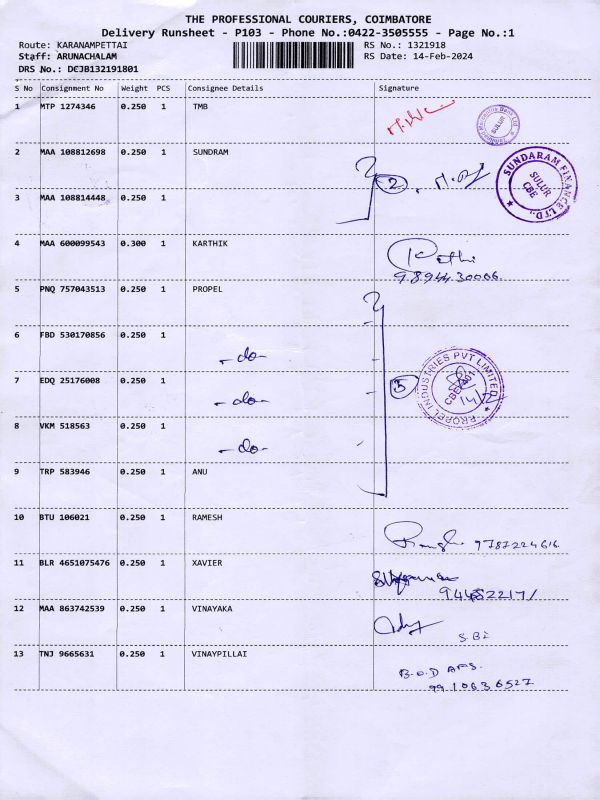 THE PROFESSIONAL COURIERS, COIMBATORE
Delivery Runsheet - P103 - Phone No.:0422-3505555 - Page No.:1
Route: KARANAMPETTAI RS No.: 1321918
Staff: ARUNACHALAM RS Date: 14-Feb-2024
DRS No.: DCJB132191801
S No Consignment No Weight PCS Consignee Details Signature
1 MTP 1274346 0.250 1 TMB
SULUR
2 MAA 108812698 0.250 1 SUNDRAM
2
SUNDARAM FINANCE LTD.,
SULUR
CBE
3 MAA 108814448 0.250 1
4 MAA 600099543 0.300 1 KARTHIK
98944 30006.
5 PNQ 757043513 0.250 1 PROPEL
6 FBD 530170856 0.250 1 -do-
7 EDQ 25176008 0.250 1 -do-
3
PROPEL INDUSTRIES PVT LIMITED
8 VKM 518563 0.250 1 -do-
9 TRP 583946 0.250 1 ANU
10 BTU 106021 0.250 1 RAMESH
9787224616
11 BLR 4651075476 0.250 1 XAVIER
12 MAA 863742539 0.250 1 VINAYAKA
SBI
13 TNJ 9665631 0.250 1 VINAYPILLAI
B.O.D AFS.
9910636527